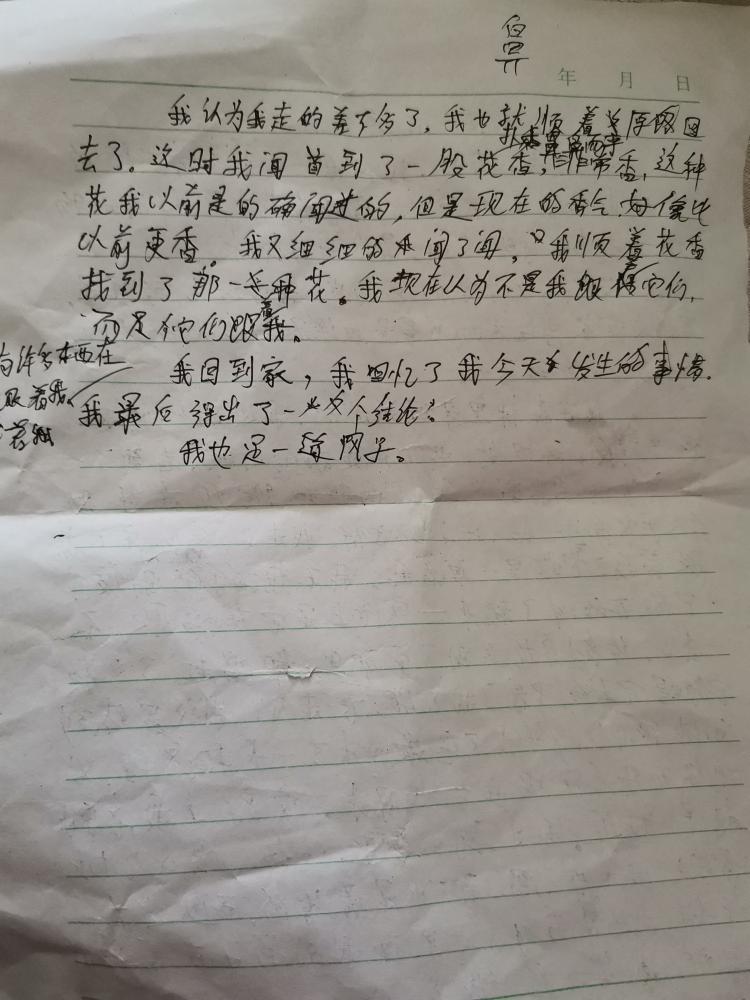 鼻
年 月 日
我认为我走的差不多了，我也就顺着原路回
扑鼻而来
去了。这时我闻到了一股花香，非常香，这种
花我以前是的确闻过的，但是现在的香气好像比
以前更香。我又细细的闻了闻，我顺着花香
找到了那一种花。我现在认为不是我跟着它们，
而是它们跟着我。
有许多东西在
跟着我
我回到家，我回忆了我今天发生的事情，
我最后得出了一个结论：
我也是一道风子。